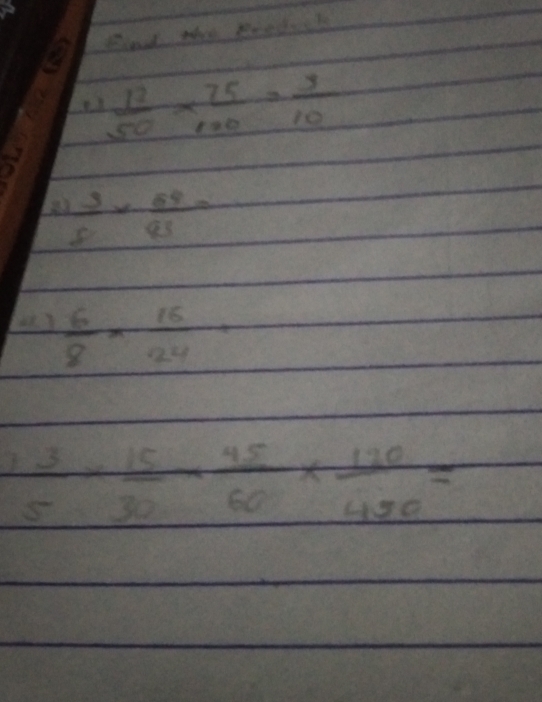 Find the Product
12/50 × 75/100 = 9/10
3/8 ×
6/8 × 16/24
3/5 × 15/30 × 45/60 × 120/450 =